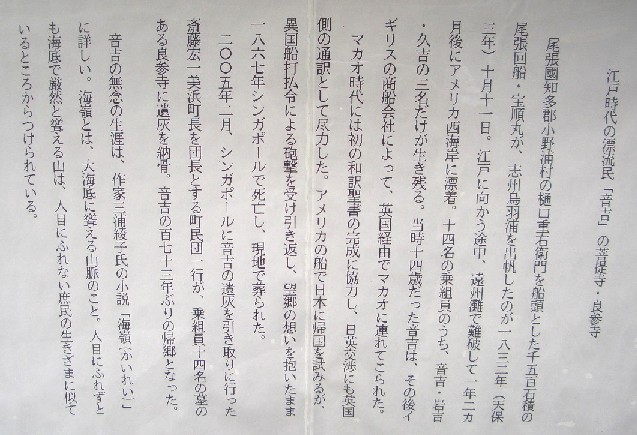 江戸時代の漂流民「音吉」の菩提寺・良参寺
尾張國知多郡小野浦村の樋口重右衛門を船頭とした千五百石積の
尾張回船・宝順丸が、志州鳥羽浦を出帆したのが一八三二年（天保
三年）十月十一日。江戸に向かう途中、遠州灘で難破して一年二カ
月後にアメリカ西海岸に漂着。十四名の乗組員のうち、音吉・岩吉
・久吉の三名だけが生き残る。当時十四歳だった音吉は、その後イ
ギリスの商船会社によって、英国経由でマカオに連れてこられた。
マカオ時代には初の和訳聖書の完成に協力し、日英交渉にも英国
側の通訳として尽力した。アメリカの船で日本に帰国を試みるが、
異国船打払令による砲撃を受け引き返し、望郷の想いを抱いたまま
一八六七年シンガポールで死亡し、現地で葬られた。
二〇〇五年二月、シンガポールに音吉の遺灰を引き取りに行った
斎藤宏一美浜町長を団長とする町民団一行が、乗組員十四名の墓の
ある良参寺に遺灰を納骨。音吉の百七十三年ぶりの帰郷となった。
音吉の無念の生涯は、作家三浦綾子氏の小説「海嶺（かいれい）」
に詳しい。海嶺とは、大海底に聳える山脈のこと。人目にふれずと
も海底で厳然と聳える山は、人目にふれない庶民の生きざまに似て
いるところからつけられている。